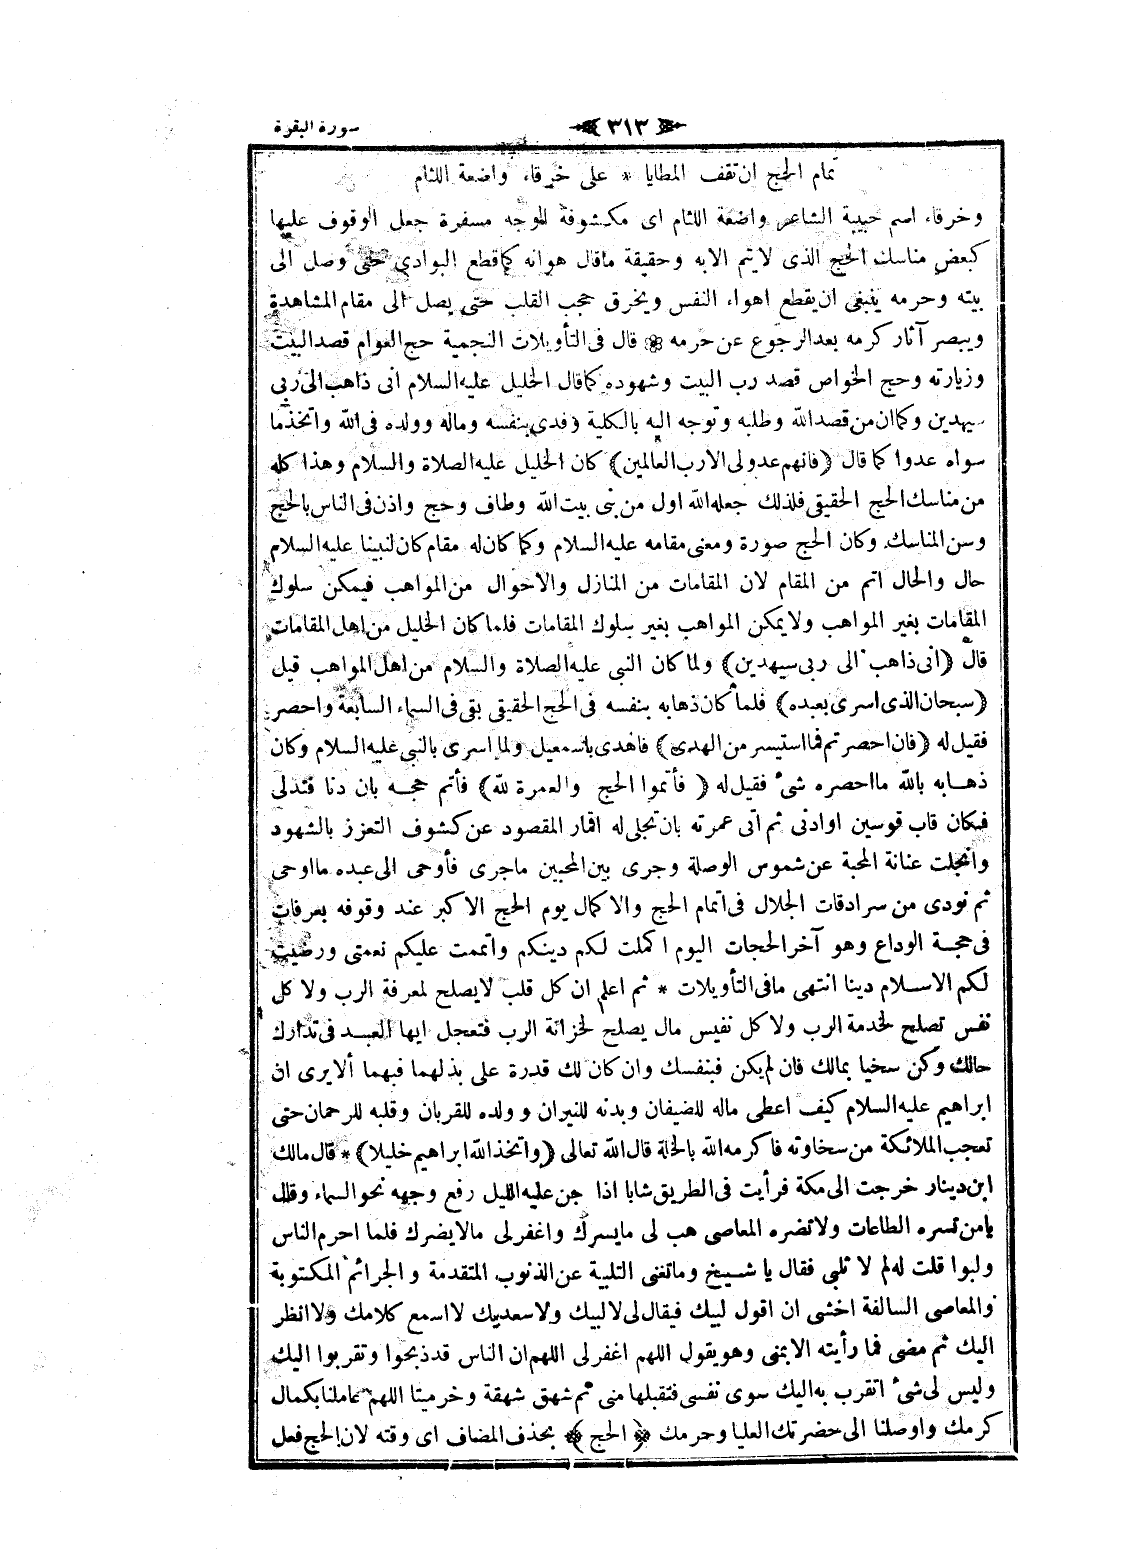 سورة البقرة
﴿ ٣١٣ ﴾
تمام الحج ان تقف المطايا * على خرقاء واضعة اللثام
وخرقاء اسم حبيبة الشاعر واضعة اللثام اى مكشوفة الوجه مسفرة جعل الوقوف عليها
كبعض مناسك الحج الذى لا يتم الا به وحقيقة ماقال هو انه كما قطع البوادى حتى وصل الى
بيته وحرمه ينبغى ان يقطع اهواء النفس ويخرق حجب القلب حتى يصل الى مقام المشاهدة
ويبصر آثار كرمه بعد الرجوع عن حرمه * قال فى التأويلات النجمية حج العوام قصد البيت
وزيارته وحج الخواص قصد رب البيت وشهوده كما قال الخليل عليه السلام انى ذاهب الى ربى
سيهدين وكما ان من قصد الله وطلبه وتوجه اليه بالكلية وفدى بنفسه وماله وولده فى الله واتخذ ما
سواه عدوا كما قال (فانهم عدو لى الا رب العالمين) كان الخليل عليه الصلاة والسلام وهذا كله
من مناسك الحج الحقيقى فلذلك جعله الله اول من بنى بيت الله وطاف وحج واذن فى الناس بالحج
وسن المناسك وكان الحج صورة ومعنى مقامه عليه السلام وكما كان له مقام كان لنبينا عليه السلام
حال والحال اتم من المقام لان المقامات من المنازل والاحوال من المواهب فيمكن سلوك
المقامات بغير المواهب ولا يمكن المواهب بغير سلوك المقامات فلما كان الخليل من اهل المقامات
قال (انى ذاهب الى ربى سيهدين) ولما كان النبى عليه الصلاة والسلام من اهل المواهب قيل
(سبحان الذى اسرى بعبده) فلما كان ذهابه بنفسه فى الحج الحقيقى بقى فى السماء السابعة واحصر
فقيل له (فان احصرتم فما استيسر من الهدى) فاهدى باسمعيل ولما اسرى بالنبى عليه السلام وكان
ذهابه بالله ما احصره شئ فقيل له ( فأتموا الحج والعمرة لله) فأتم حجه بان دنا فتدلى
فكان قاب قوسين او ادنى ثم اتى عمرته بان تجلى له اقمار المقصود عن كشوف التعزز بالشهود
وانجلت عنانة المحبة عن شموس الوصلة وجرى بين المحبين ماجرى فأوحى الى عبده ما اوحى
ثم نودى من سرادقات الجلال فى اتمام الحج والا كمال يوم الحج الاكبر عند وقوفه بعرفات
فى حجة الوداع وهو آخر الحجات اليوم اكملت لكم دينكم واتممت عليكم نعمتى ورضيت
لكم الاسلام دينا انتهى مافى التأويلات * ثم اعلم ان كل قلب لا يصلح لمعرفة الرب ولا كل
نفس تصلح لخدمة الرب ولا كل نفيس مال يصلح لخزانة الرب فتعجل ايها العبد فى تدارك
حالك وكن سخيا بمالك فان لم يكن فبنفسك وان كان لك قدرة على بذلهما فبهما ألا يرى ان
ابراهيم عليه السلام كيف اعطى ماله للضيفان وبدنه للنيران وولده للقربان وقلبه للرحمان حتى
تعجب الملائكة من سخاوته فاكرمه الله بالخلة قال الله تعالى (واتخذ الله ابراهيم خليلا) * قال مالك
ابن دينار خرجت الى مكة فرأيت فى الطريق شابا اذا جن عليه الليل رفع وجهه نحو السماء وقال
يا من تسره الطاعات ولا تضره المعاصى هب لى ما يسرك واغفر لى مالا يضرك فلما احرم الناس
ولبوا قلت له لم لا تلبى فقال يا شيخ وما تغنى التلبية عن الذنوب المتقدمة والجرائم المكتوبة
والمعاصى السالفة اخشى ان اقول لبيك فيقال لى لا لبيك ولا سعديك لا اسمع كلامك ولا انظر
اليك ثم مضى فما رأيته الا بمنى وهو يقول اللهم اغفر لى اللهم ان الناس قد ذبحوا وتقربوا اليك
وليس لى شئ اتقرب به اليك سوى نفسى فتقبلها منى ثم شهق شهقة وخر ميتا اللهم عاملنا بكمال
كرمك واوصلنا الى حضرتك العليا وحرمك ﴿ الحج ﴾ بحذف المضاف اى وقته لان الحج فعل